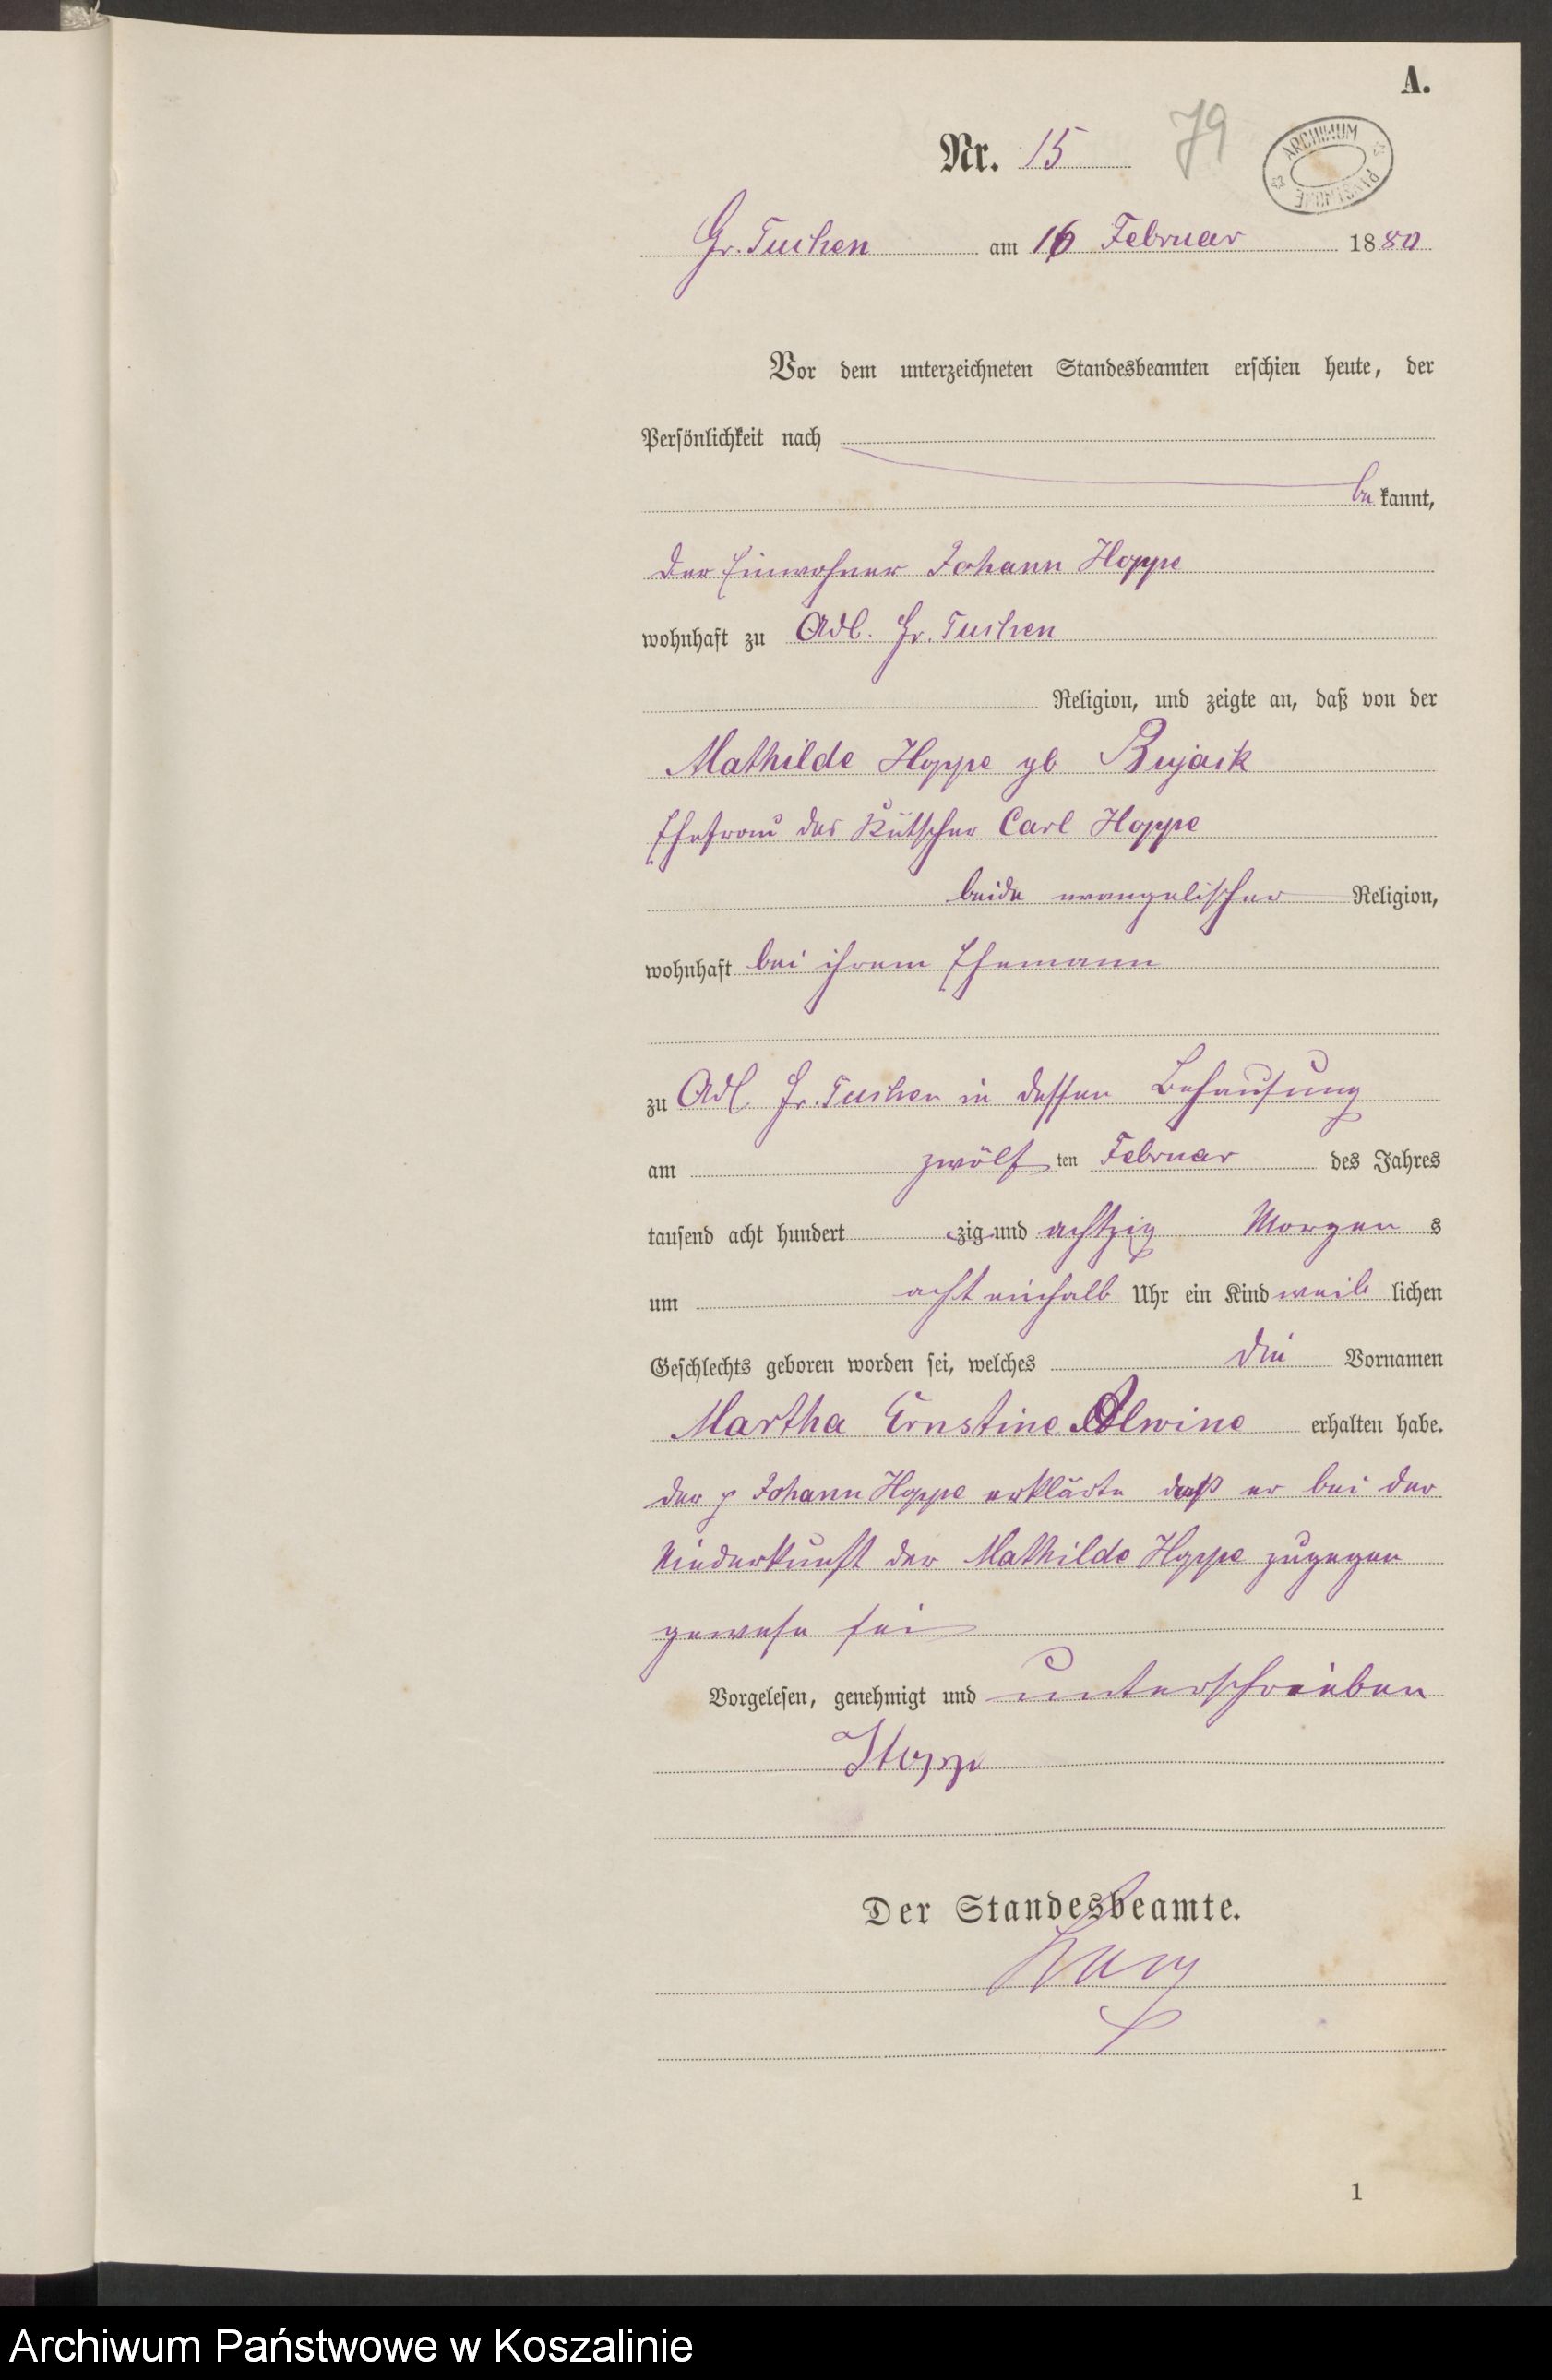 A.
Nr. 15
79
ARCHIWUM PAŃSTWOWE
Gr. Tuchen am 16 Februar 1880
Vor dem unterzeichneten Standesbeamten erschien heute, der
Persönlichkeit nach
be kannt,
der Einwohner Johann Hoppe
wohnhaft zu Adl. Gr. Tuchen
Religion, und zeigte an, daß von der
Mathilde Hoppe gb Bujack
Ehefrau des Kutscher Carl Hoppe
beide evangelischer Religion,
wohnhaft bei ihrem Ehemann
zu Adl. Gr. Tuchen in dessen Behausung
am zwölf ten Februar des Jahres
tausend acht hundert zig und achtzig Morgen s
um acht einhalb Uhr ein Kind weib lichen
Geschlechts geboren worden sei, welches die Vornamen
Martha Ernstine Alwine erhalten habe.
der p Johann Hoppe erklärte daß er bei der
Niederkunft der Mathilde Hoppe zugegen
gewese sei
Vorgelesen, genehmigt und unterschrieben
Hoppe
Der Standesbeamte.
1
Archiwum Państwowe w Koszalinie